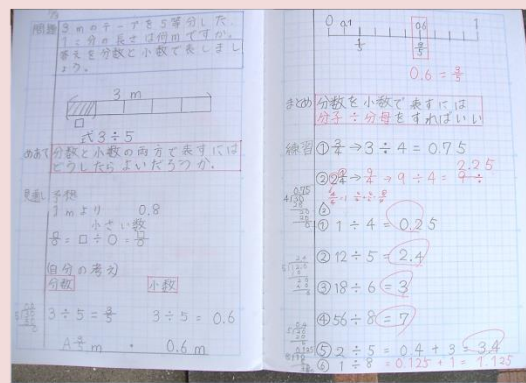 問題 3mのテープを5等分した
1こ分の長さは何mですか。
答えを分数と小数で表しましょう。
3 m
□
式 3÷5
めあて 分数と小数の両方で表すには
どうしたらよいだろうか。
見通し 予想
1mより 0.8
小さい数
(自分の考え)
分数 小数
3÷5=3/5 3÷5=0.6
A 3/5 m 0.6m
0 0.1 0.6 1
1/5 3/5
0.6=3/5
まとめ 分数を小数で表すには
分子÷分母をすればいい
練習 ①3/4→3÷4=0.75
2.25
②2 1/4→9/4→9÷4=
①1÷4=0.25
②12÷5=2.4
③18÷6=3
④56÷8=7
⑤2÷5=0.4+3=3.4
⑥1÷8=0.125+1=1.125